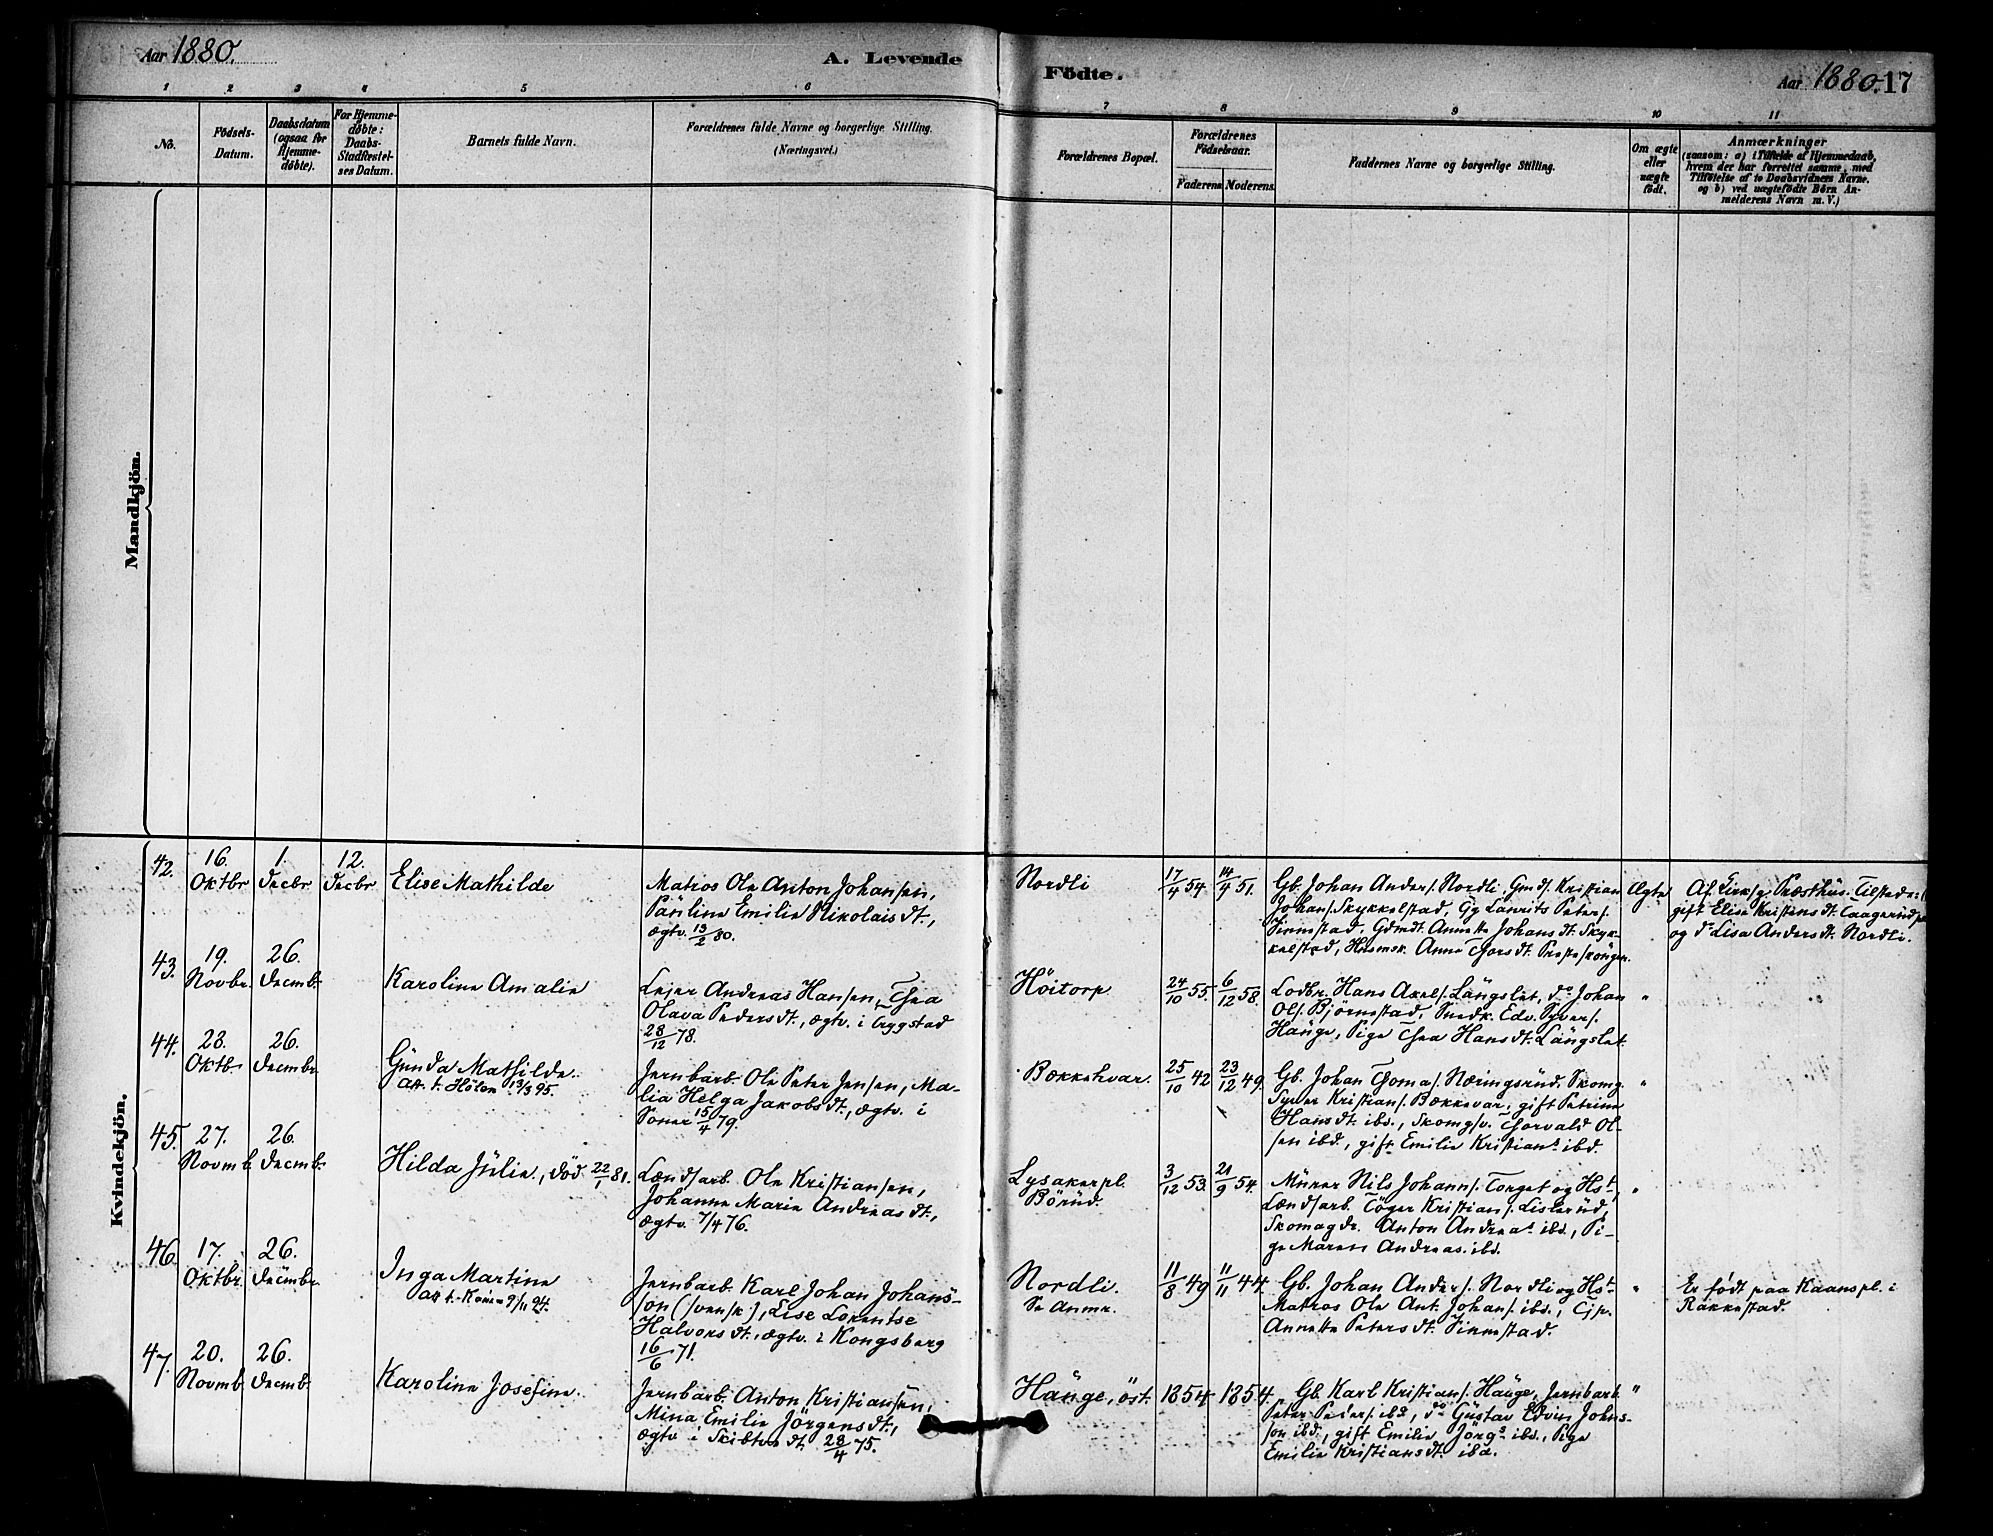 Aar 1880.
A. Levende
Födte.
Aar 1880. 17
1 2 3 4 5 6 7 8 9 10 11
No.
Födsels-
Datum.
Daabsdatum
(ogsaa for
Hjemme-
döbte).
For Hjemme-
døbte:
Daabs-
Stadfæstel-
ses Datum.
Barnets fulde Navn.
Forældrenes fulde Navne og borgerlige Stilling.
(Næringsvei.)
Forældrenes Bopæl.
Forældrenes
Födselsaar.
Faderens Moderens
Faddernes Navne og borgerlige Stilling.
Om ægte
eller
uægte
født.
Anmærkninger
(saasom: a) i Tilfælde af Hjemmedaab,
hvem der har forrettet samme, med
Tilføielse af to Daabsvidners Navne.
og b) ved uægtefødte Börn An-
melderens Navn m.V.)
Mandkjön.
Kvindekjön.
42.
16.
Oktbr
1.
Decbr
12.
Decbr
Elise Mathilde
Matros Ole Anton Johansen,
Pauline Emilie Nikolaisdt.,
ægtv. 13/2 80.
Nordli
17/4 54. 14/9 51.
Gb. Johan Anders. Nordli, Gmds. Kristian
Johans. Skykkelstad, Gg Laurits Peters.
Finnestad, Gdmdt. Annette Johansdt. Skyk-
kelstad, Husmsk. Anne Thorsdt.
Ægte
gift Elise Kristensdt.
og do Lisa Andersdt. Nordli.
43.
19.
Novbr.
26.
Decmb.
Karoline Amalie
Leier Andreas Hansen, Thea
Olava Pedersdt., ægtv. i Trygstad
28/12 78.
Höitorp
24/10 55. 6/12 58.
Lodbr. Hans Axels. Langslet, do Johan
Ols. Bjørnestad, Snedk. Edv. Syvers.
Hauge, Pige Thea Hansdt. Langslet.
"
44.
28.
Oktb.
26.
Decmbr
Gunda Mathilde.
Att. t. Hölen 13/3 95.
Jernbarb. Ole Peter Jensen, Ma-
lia Helga Jakobsdt., ægtv. i
Soner 15/4 79.
Bækkehvar.
25/10 42 23/12 49.
Gb. Johan Thomas. Næringsrud. Skomg.
Syver Kristians. Bækkevar, gift Petrine
Hansdt. ibd., Skomgsv. Thorvald Ol-
sen ibd., gift Emilie Kristians. ibd.
"
45.
27.
Novmb.
26.
Decmb.
Hilda Julie., död 22/1 81.
Lændsarb. Ole Kristiansen,
Johanne Marie Andreasdt.,
ægtv. 7/4 76.
Lysakerpl.
Börud.
3/12 53. 21/9 54.
Murer Nils Johanns. Torget og Hst.,
Lændsarb. Töger Kristians. Lislerud,
Skomagdr. Anton Andreas. ibd., Pi-
ge Maren Andreas. ibd.
"
46.
17.
Oktbr.
26.
Decmbr.
Inga Martine
Jernbarb. Karl Johan Johans-
son (svensk), Lise Lorentse
Halvorsdt., ægtv. i Kongsberg
16/6 71.
Nordli.
Se Anmk.
11/8 49 11/11 44.
Gb. Johan Anders. Nordli og Hst.
Matros Ole Ant. Johans. ibd.,
Annette Petersdt. Finnestad.
"
Er født paa Kaanspl. i
Rakkestad.
47.
20.
Novmb.
26.
Decmb.
Karoline Josefine.
Jernbarb. Anton Kristiansen,
Mina Emilie Jörgensdt.,
ægtv. i Skibtvedt. 28/4 75.
Hauge, öst.
1854. 1854.
Gb. Karl Kristians. Hauge, Jernbarb.
Peter Peders. ibd, do Gustav Edvin Johns-
son ibd., gift Emilie Jörgs. ibd., Pige
Emilie Kristiansdt. ibd.
"